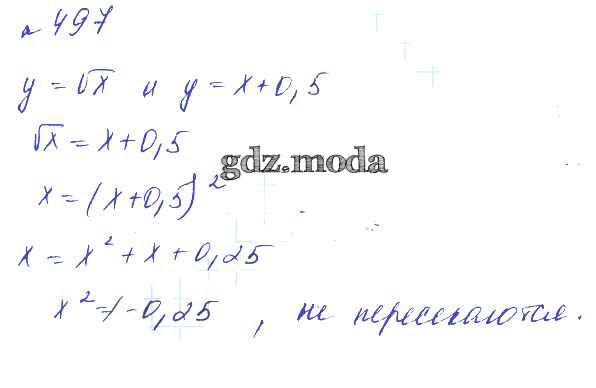 № 497
y = √x и y = x+0,5
√x = x+0,5
gdz.moda
x = (x+0,5)²
x = x² + x + 0,25
x² = -0,25 , не пересекаются.